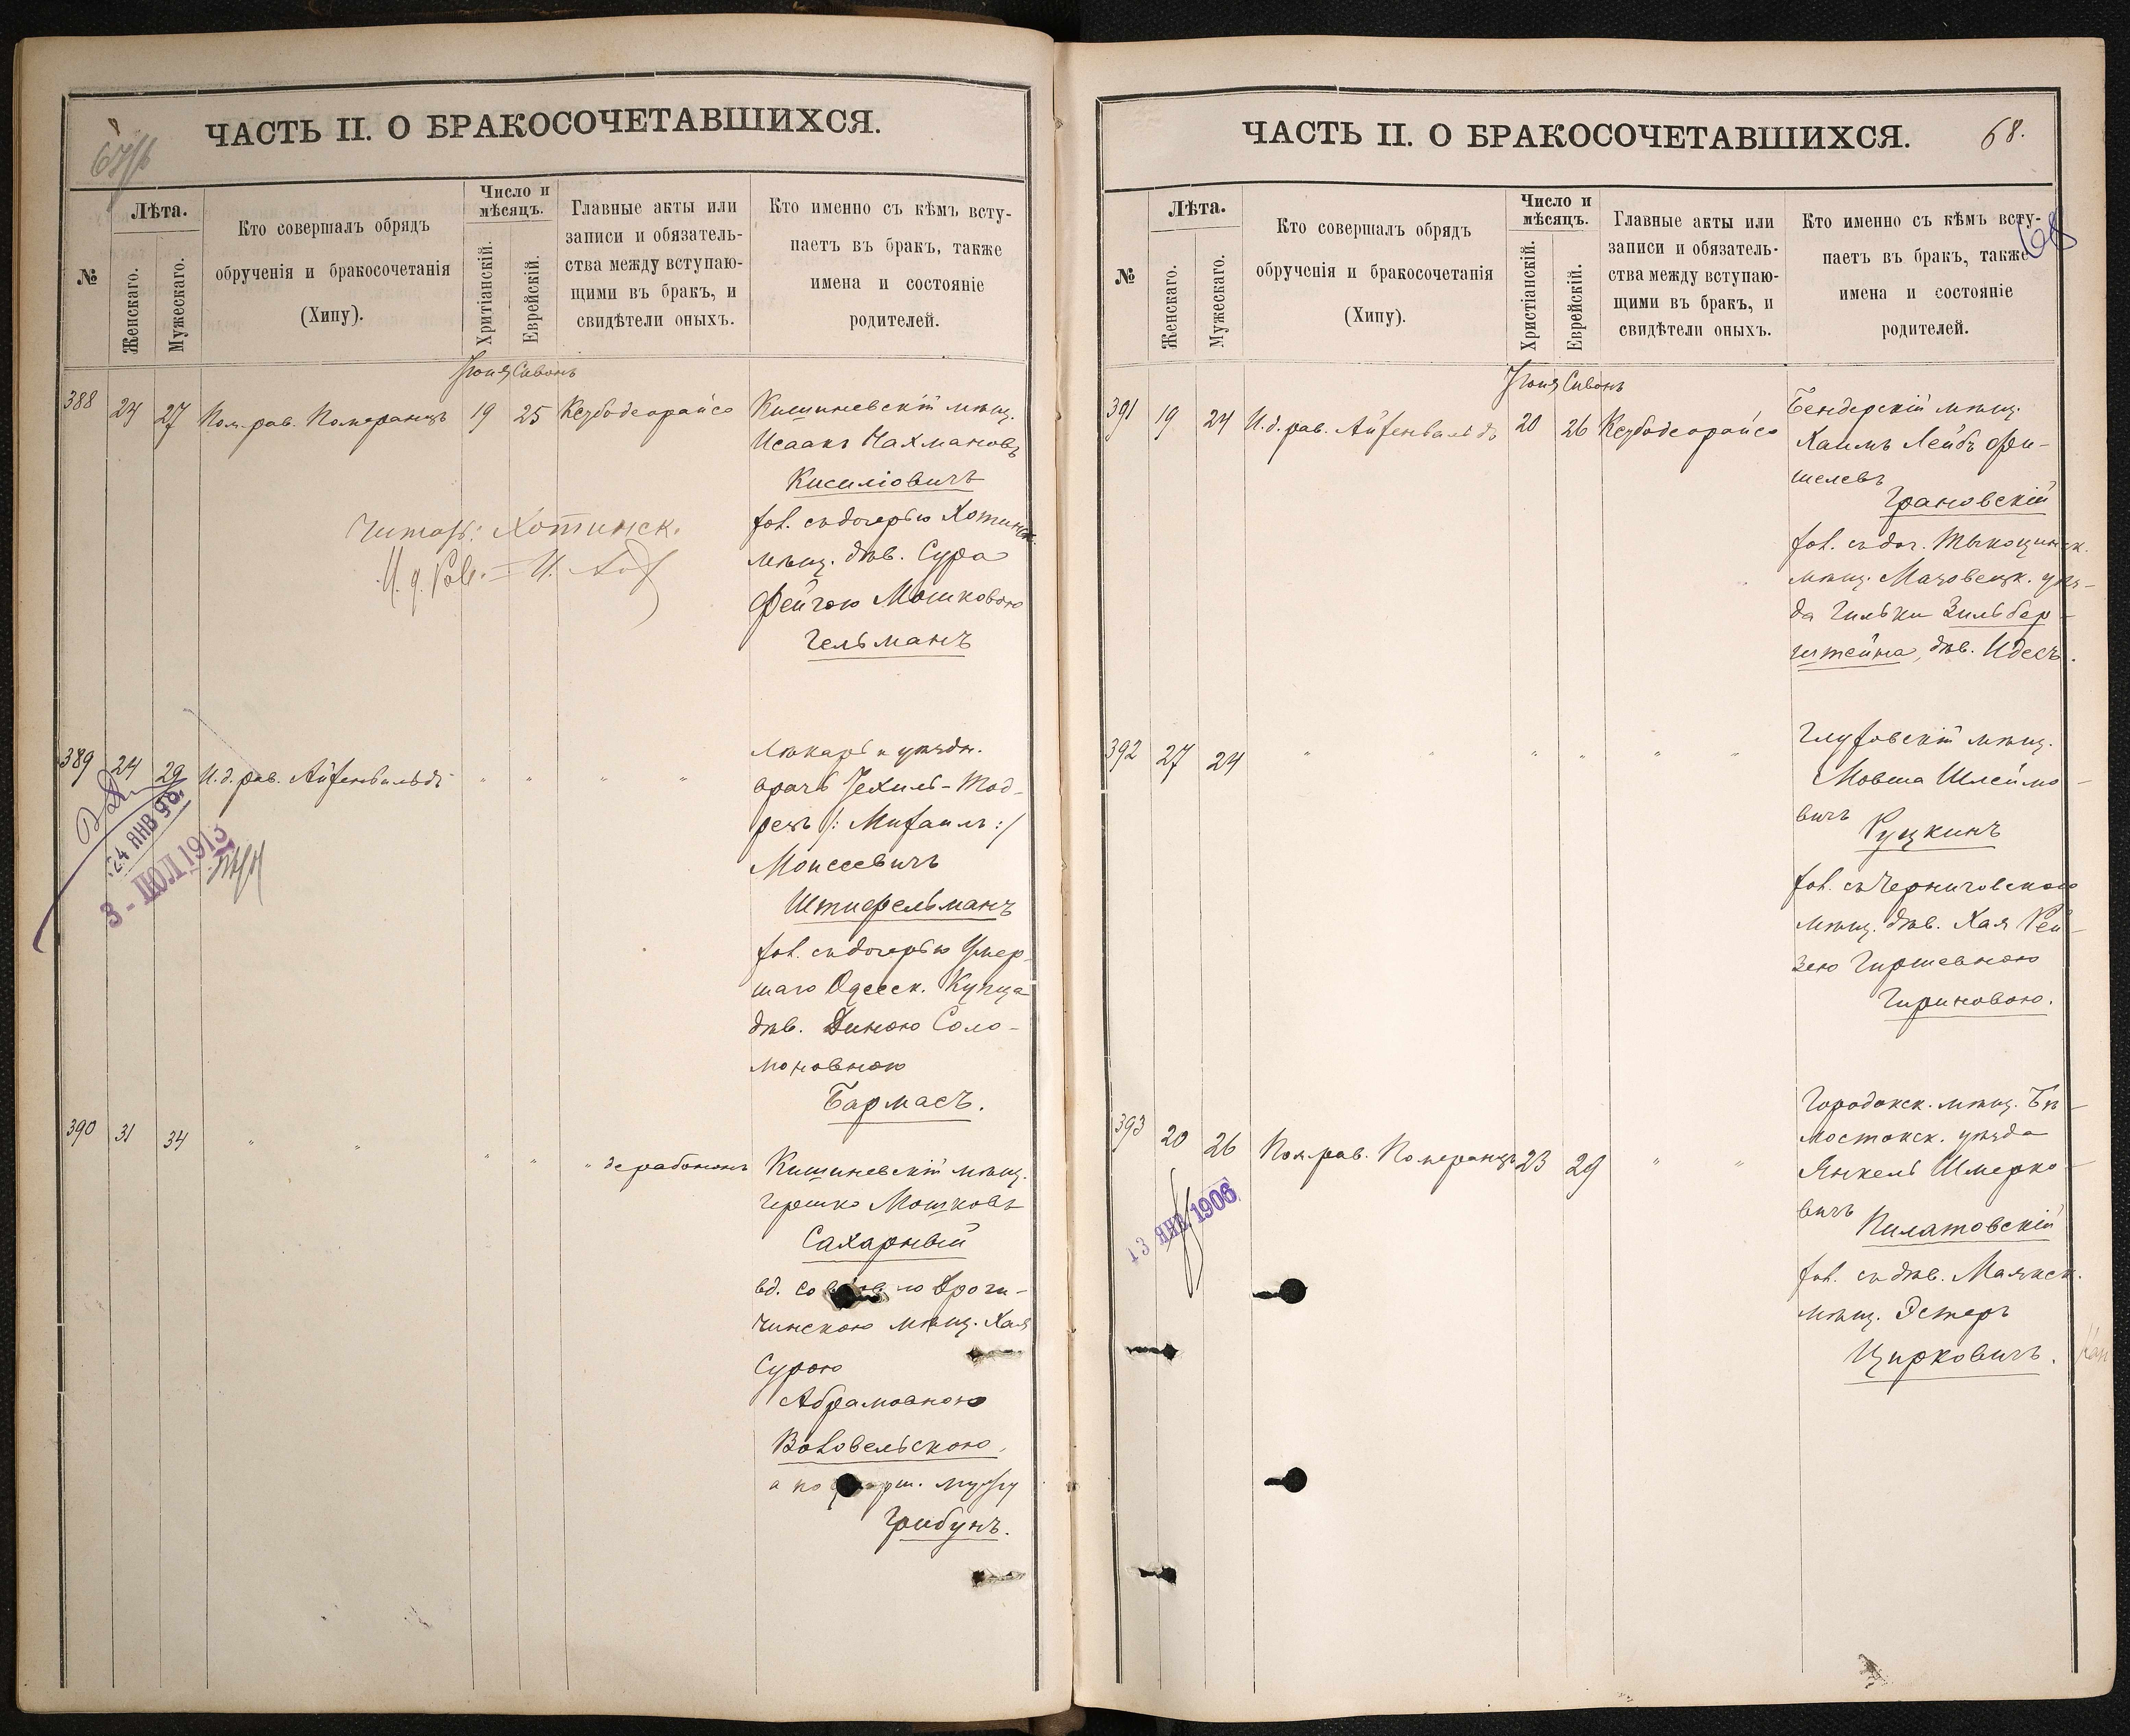 ЧАСТЬ II. О БРАКОСОЧЕТАВШИХСЯ.
№
Лѣта.
Женскаго.
Мужескаго.
Кто совершалъ обрядъ
обрученія и бракосочетанія
(Хипу).
Число и
мѣсяцъ.
Хритіанскій.
Еврейскій.
Главные акты или
записи и обязатель-
ства между вступаю-
щими въ бракъ, и
свидѣтели оныхъ.
Кто именно съ кѣмъ всту-
паетъ въ бракъ, также
имена и состояніе
родителей.
Іюня Сивонъ
388 24 27 Пом. рав. Померанцъ 19 25 Ксубодеорайсо
Кишиневскій мѣщ.
Исаакъ Нахмановъ
Кисиліовичъ
хол. съ дочерью Хотинск.
мѣщ. дѣв. Сура
Фейгою Мошковою
Гельманъ
Читать: Хотинск.
И. д. Рав.
389 24 29 И. д. рав. Айхенвальдъ " " " "
Лѣкарь и уѣздн.
врачъ Іехиль-Тод-
ресъ /: Михаилъ :/
Моисеевичъ
Штифельманъ
хол. съ дочерью Умер-
шаго Одесск. Купца
дѣв. Диною Соло-
моновною
Бармасъ.
24 ЯНВ 98.
3 - ІЮЛ 1913
390 31 34 " " " " " дерабононъ
Кишиневскій мѣщ.
Гершко Мошковъ
Сахарный
вд. со вдовою Дроги-
чинскою мѣщ. Хая
Сурою
Абрамовною
Воловельскою,
а по умерш. мужу
Грибунъ.
ЧАСТЬ II. О БРАКОСОЧЕТАВШИХСЯ.
68.
68
№
Лѣта.
Женскаго.
Мужескаго.
Кто совершалъ обрядъ
обрученія и бракосочетанія
(Хипу).
Число и
мѣсяцъ.
Христіанскій.
Еврейскій.
Главные акты или
записи и обязатель-
ства между вступаю-
щими въ бракъ, и
свидѣтели оныхъ.
Кто именно съ кѣмъ всту-
паетъ въ бракъ, также
имена и состояніе
родителей.
Іюня Сивонъ
391 19 24 И. д. рав. Айхенвальдъ 20 26 Ксубодеорайсо
Бендерскій мѣщ.
Хаимъ Лейбъ Фи-
шелевъ
Грановскій
хол. съ доч. Тыкоцинск.
мѣщ. Мазовецк. уѣз-
да Гильки Зильбер-
штейна, дѣв. Идесъ.
392 27 24 " " " " " "
Глуховскій мѣщ.
Мовша Шлеймо-
вичъ
Руцкинъ
хол. съ Черниговскою
мѣщ. дѣв. Хая Рей-
зею Гиршевною
Гириновою.
393 20 26 Пом. рав. Померанцъ 23 29 " "
Городокск. мѣщ. Бѣ-
лостокск. уѣзда
Янкель Шмерко-
вичъ
Пилатовскій
хол. съ дѣв. Маякск.
мѣщ. Эстеръ
Цирковичъ.
13 ЯНВ 1906